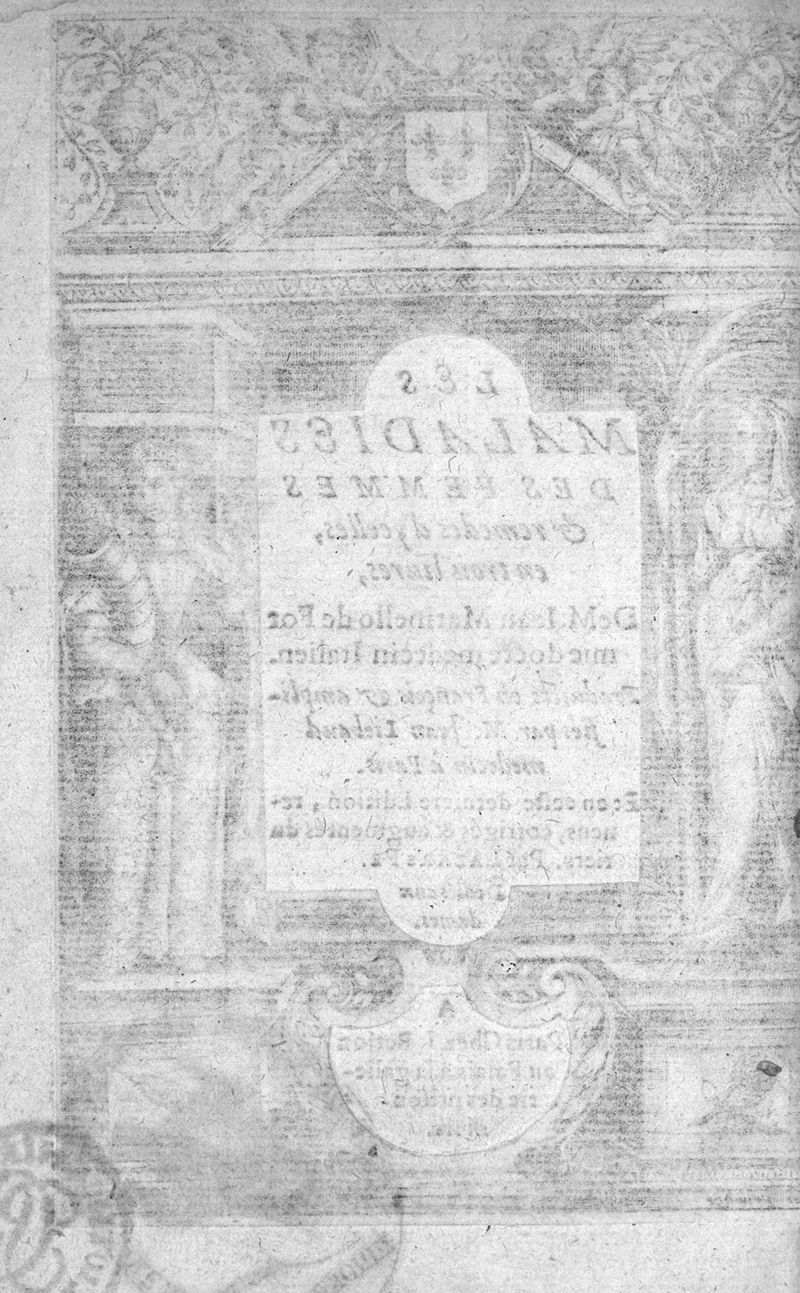 LES
MALADIES
DES FEMMES
& remedes d'ycelles,
en trois liures,
De M. Iean Marinello de For
mie docte medecin Italien.
Traduittes en François & ampli-
fiees par M. Jean Liebaud
medecin à Paris.
Et en ceste derniere Edition, re-
ueus, corrigés & augmentés du
tiers. Par
Dediées aux
dames.
A
Paris Chez I. Berion
au Palais à la galle-
rie des prison-
niers.